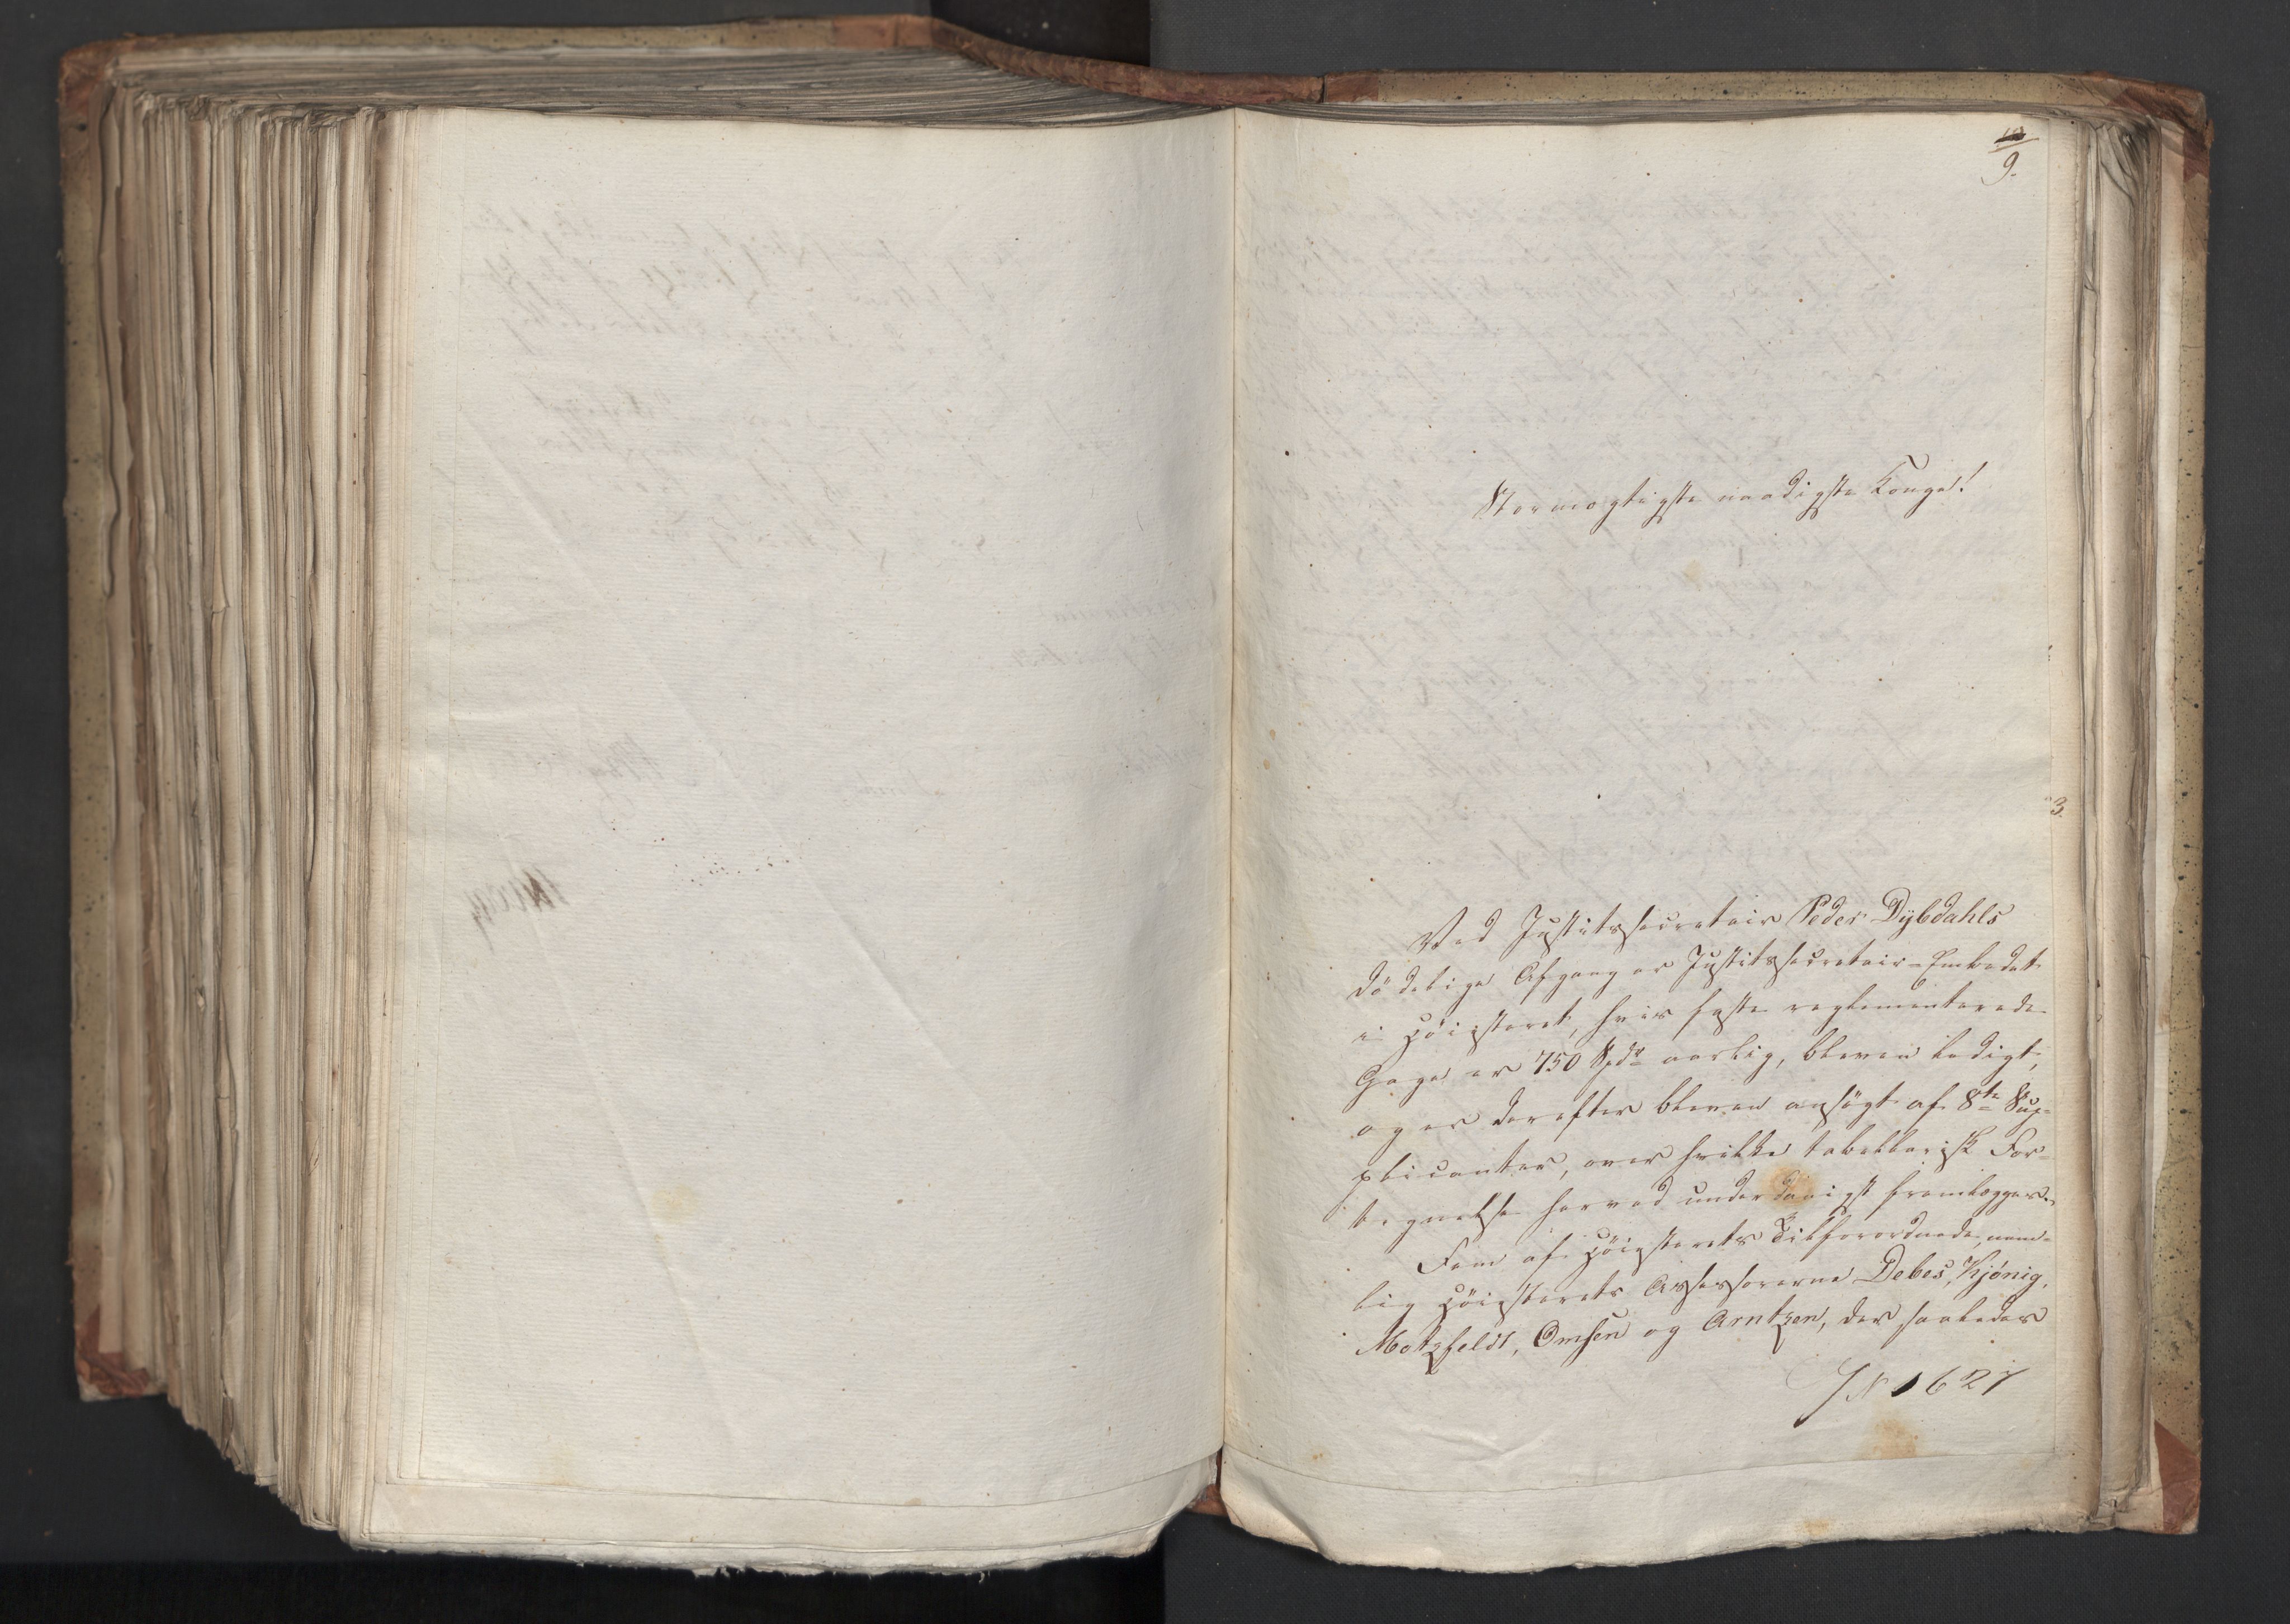 9.
Stormægtigste naadigste Konge!
3
Ved Justitssecretair Peder Dÿbdahls
dödelige Afgang er Justitssecretair-Embedet
i Höiesteret, hvis faste reglementerede
Gage er 750 Spdr aarlig, bleven ledigt,
og er derefter bleven ansögt af 8te Sup-
plicanter, over hvilke tabellarisk For-
tegnelse herved underdanigst fremlægges.
Fem af Höiesterets Tilforordnede, nem-
lig Höiesterets Assessorerne Debes, Kjönig,
Motzfeldt, Omsen og Arntzen, der saaledes
JN 1627